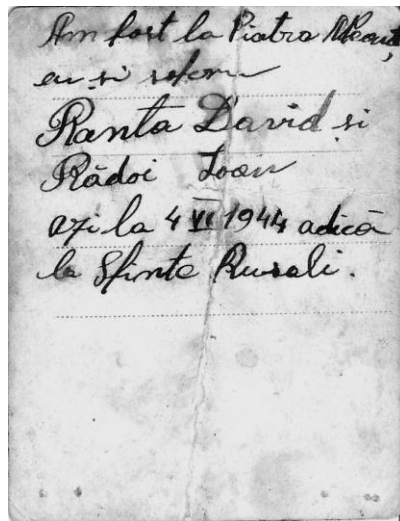 Am fost la Piatra Neamț
eu și
Ranta David si
Rădoi Ioan
azi la 4 VI 1944 adică
la Sfinte Rusali.